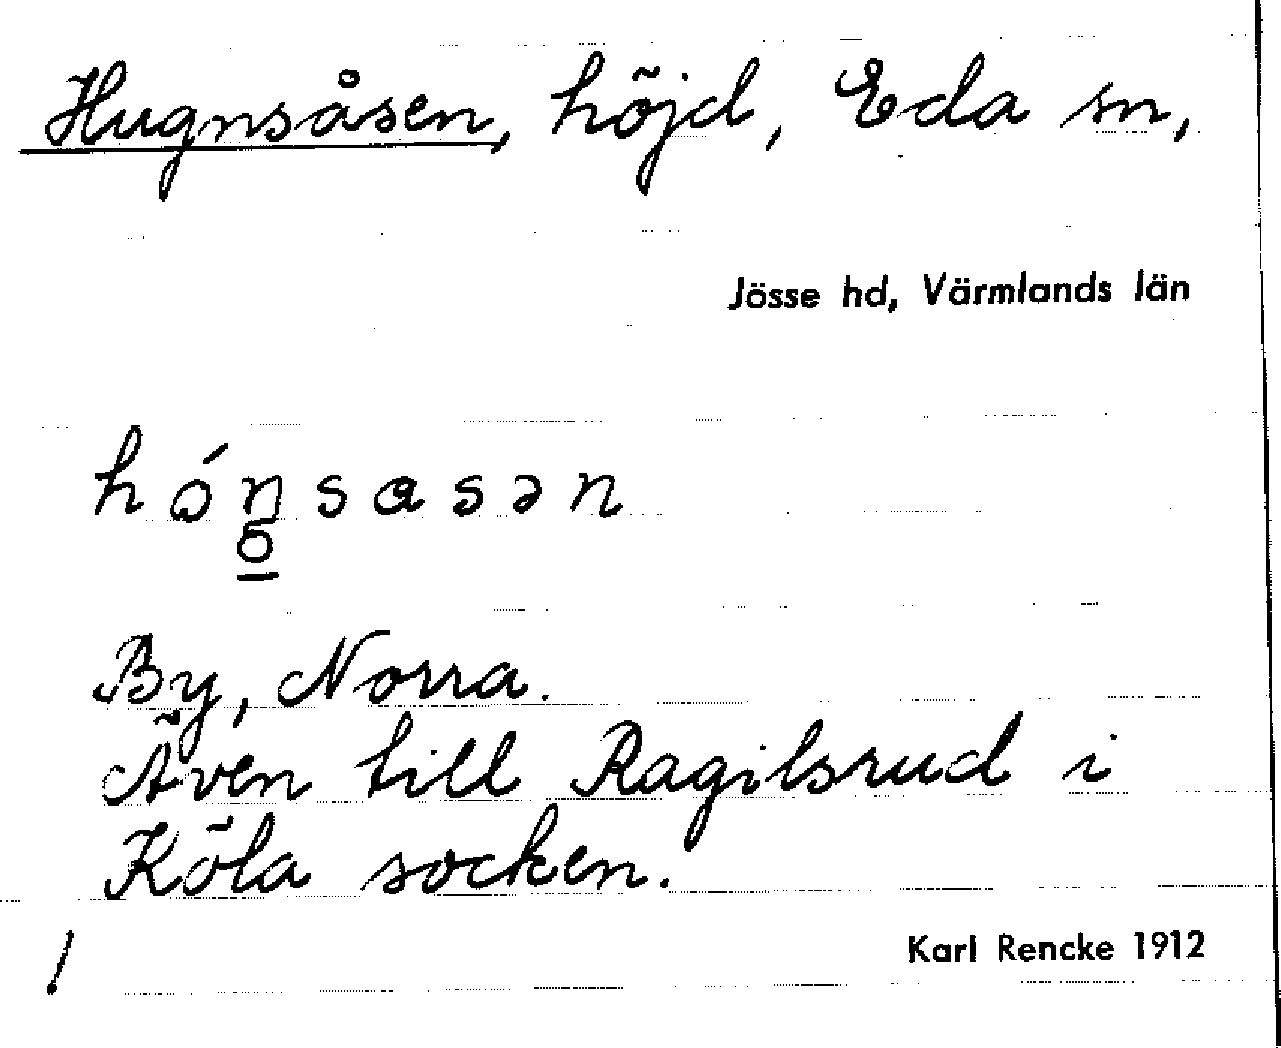 Hugnsåsen, höjd, Eda sn,
Jösse hd, Värmlands län
hónsasən
By, Norra.
Även till Ragilsrud i
Köla socken.
Karl Rencke 1912